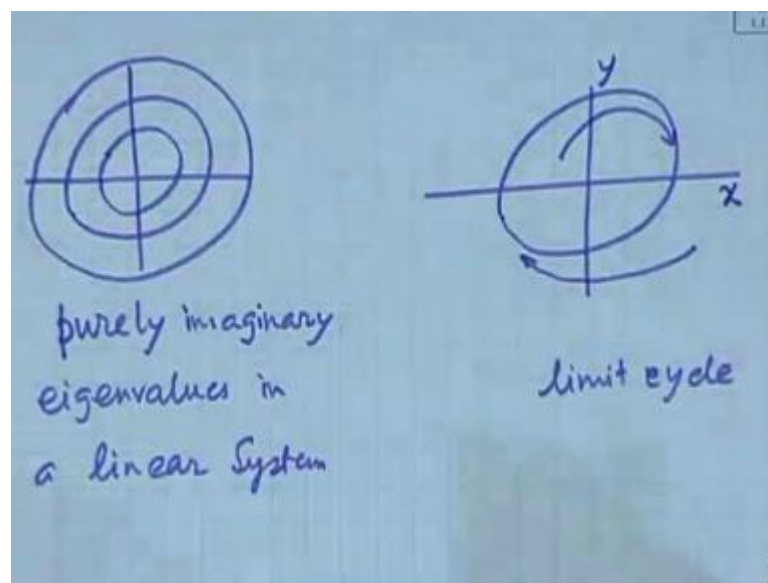 purely imaginary
eigenvalues in
a linear System
y
x
limit cycle